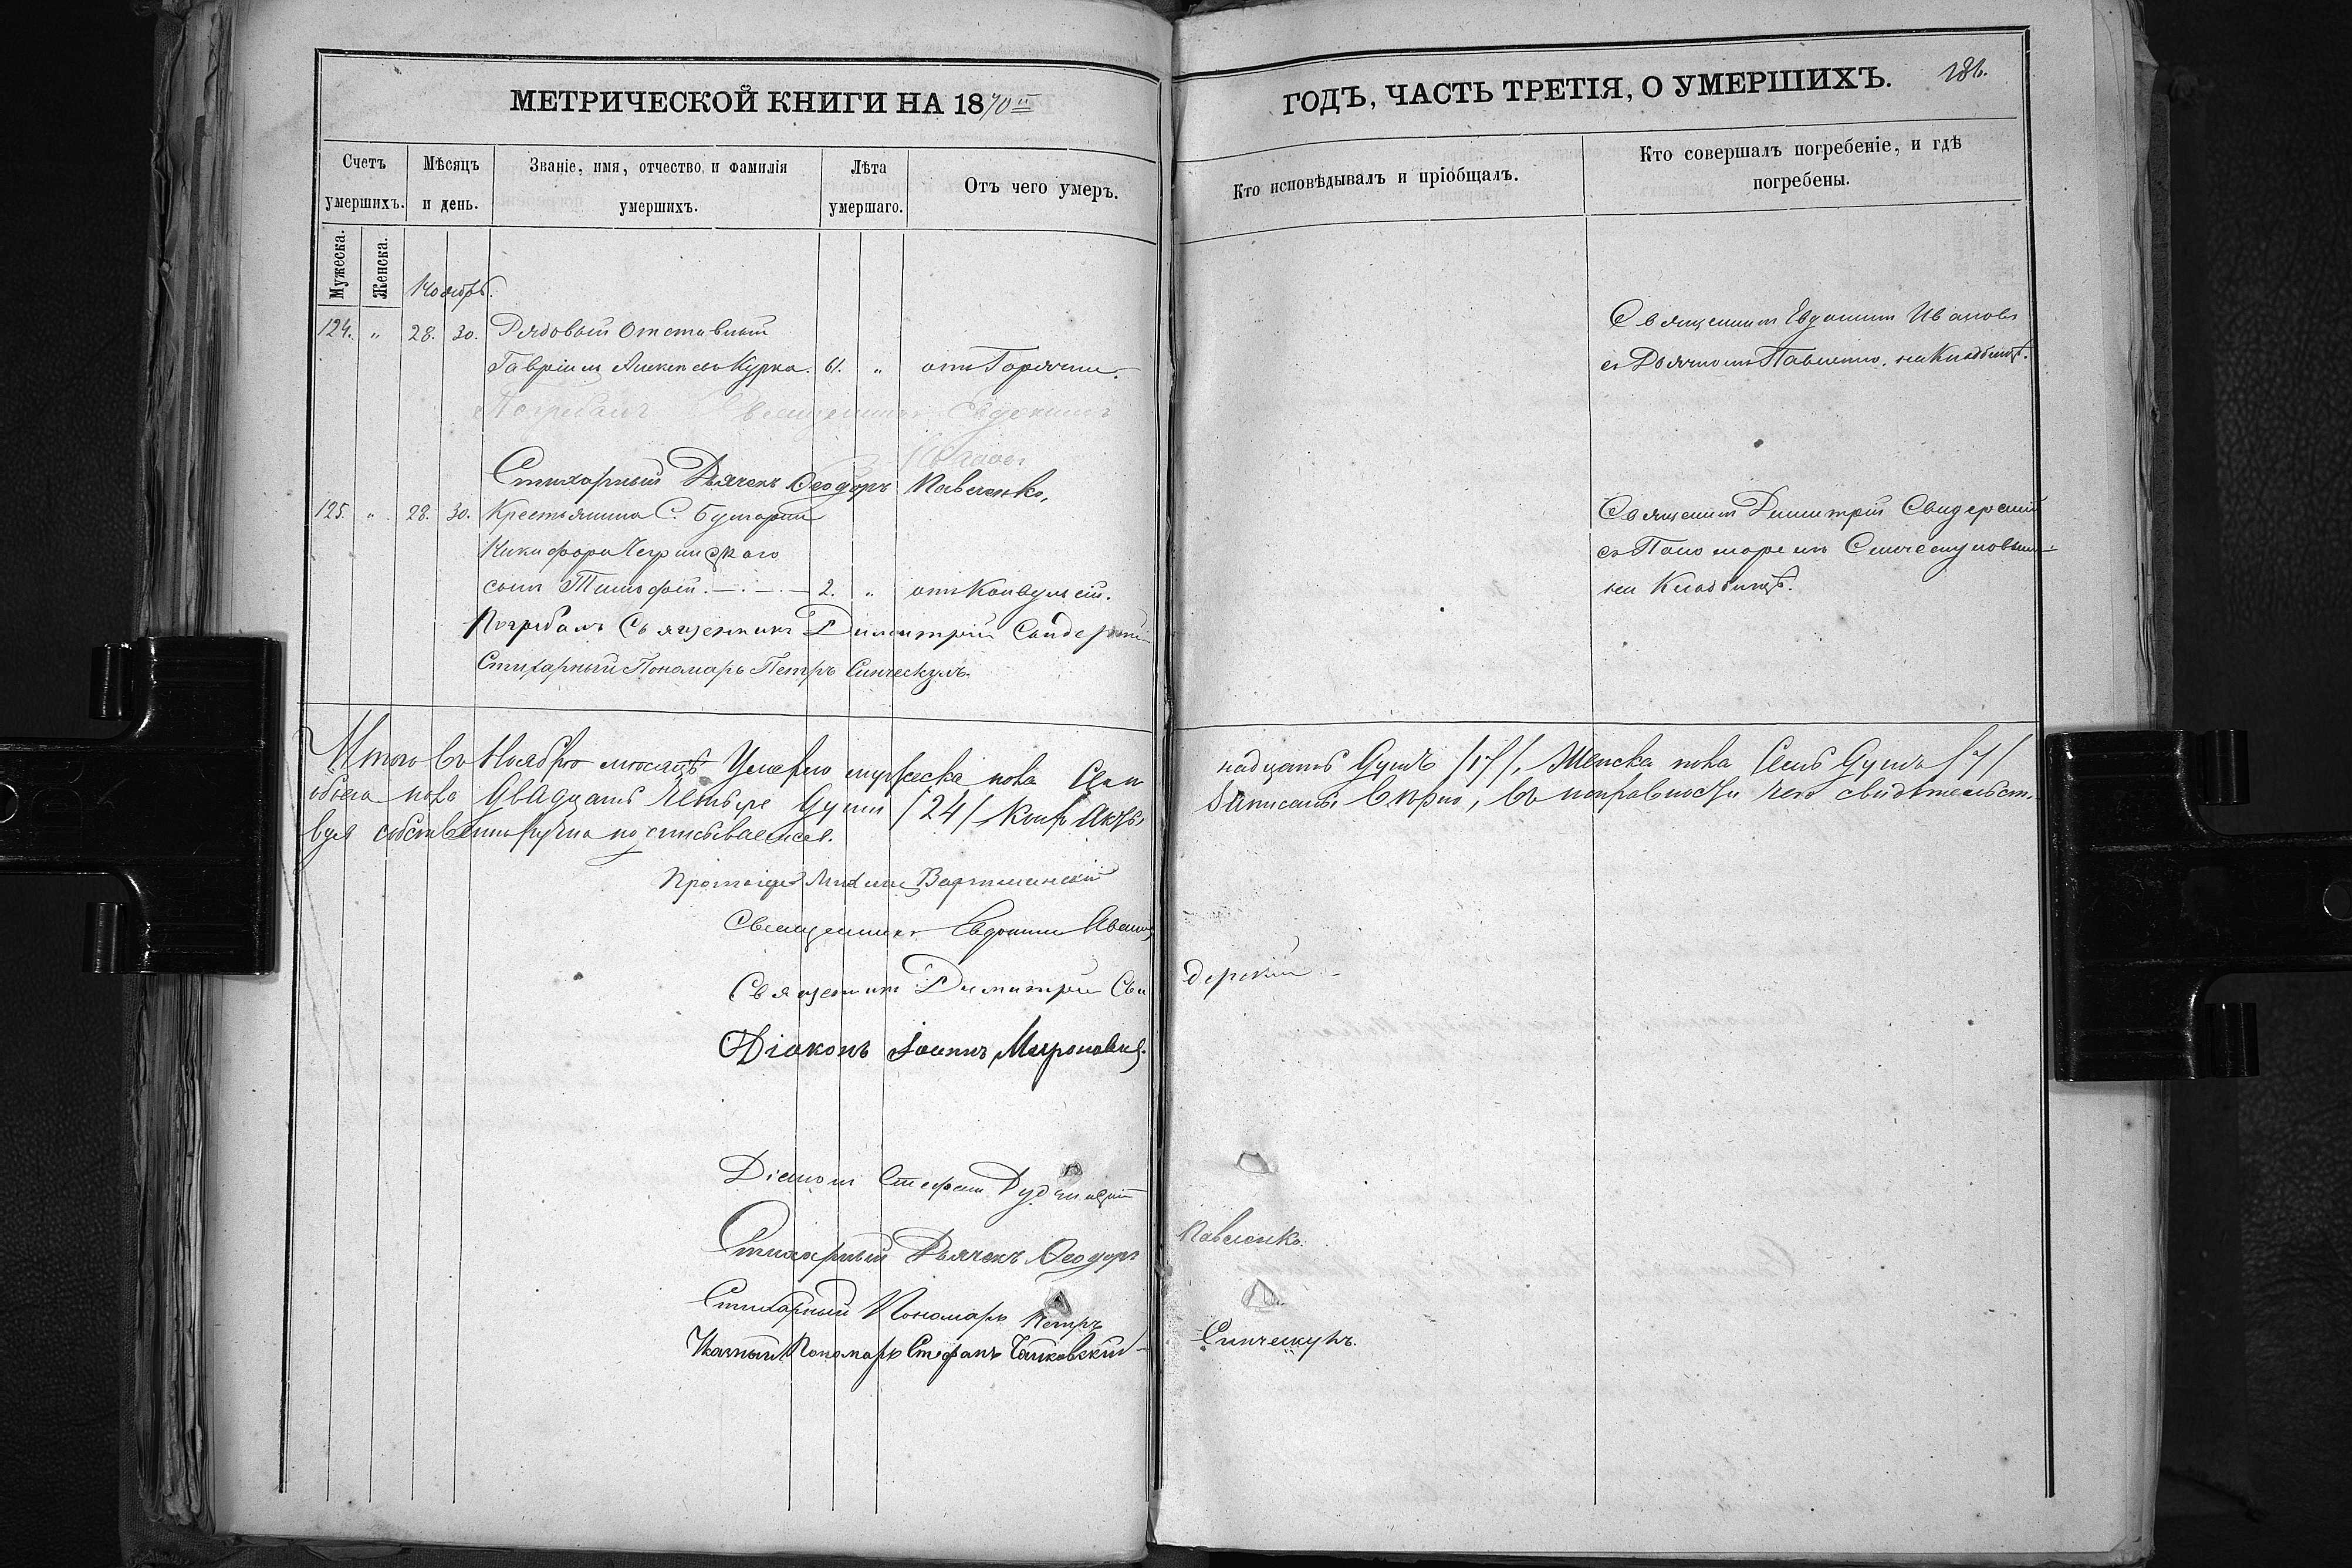 МЕТРИЧЕСКОЙ КНИГИ НА 1870й
ГОДЪ, ЧАСТЬ ТРЕТІЯ, О УМЕРШИХЪ.
181.
Счетъ умершихъ.
Мѣсяцъ и день.
Званіе, имя, отчество и фамилія умершихъ.
Лѣта умершаго.
Отъ чего умеръ.
Кто исповѣдывалъ и пріобщалъ.
Кто совершалъ погребеніе, и гдѣ погребены.
Мужеска.
Женска.
Ноябрь.
124. " 28. 30. Рядовый Отставный
Гавріилъ Курка. 61. " отъ Горячки.
Священникъ Евдокимъ Ивановъ
съ Дьячкомъ Павленко, на Кладбищѣ.
Погребалъ Священникъ Евдокимъ
Ивановъ
Стихарный Дьячекъ Ѳеодоръ Павленко.
125. " 28. 30. Крестьянина С.
Никифора
сынъ Тимофей. 2. " отъ Конвульсій.
Священникъ Димитрій Свидерскій
съ Пономаремъ Синческуловымъ
на Кладбищѣ.
Погребалъ Священникъ Димитрій Свидерскій
Стихарный Пономарь Петръ Синческулъ.
Итого въ Ноябрѣ мѣсяцѣ Умерло мужеска пола Семнадцать Душъ /17/, Женска пола Семь Душъ /7/
обоего пола Двадцать Четыре Души /24/ записаны вѣрно, въ исправности чего свидѣтельст
вуя собственноручно подписываемся.
Протоіерей Михаилъ
Священникъ Евдокимъ Ивановъ
Священникъ Димитрій Свидерскій
Діаконъ Іоаннъ Мироновичъ.
Діаконъ Стефанъ
Стихарный Дьячекъ Ѳеодоръ Павленко.
Стихарный Пономарь Петръ Синческулъ.
Указный Пономарь Стефанъ Чайковскій